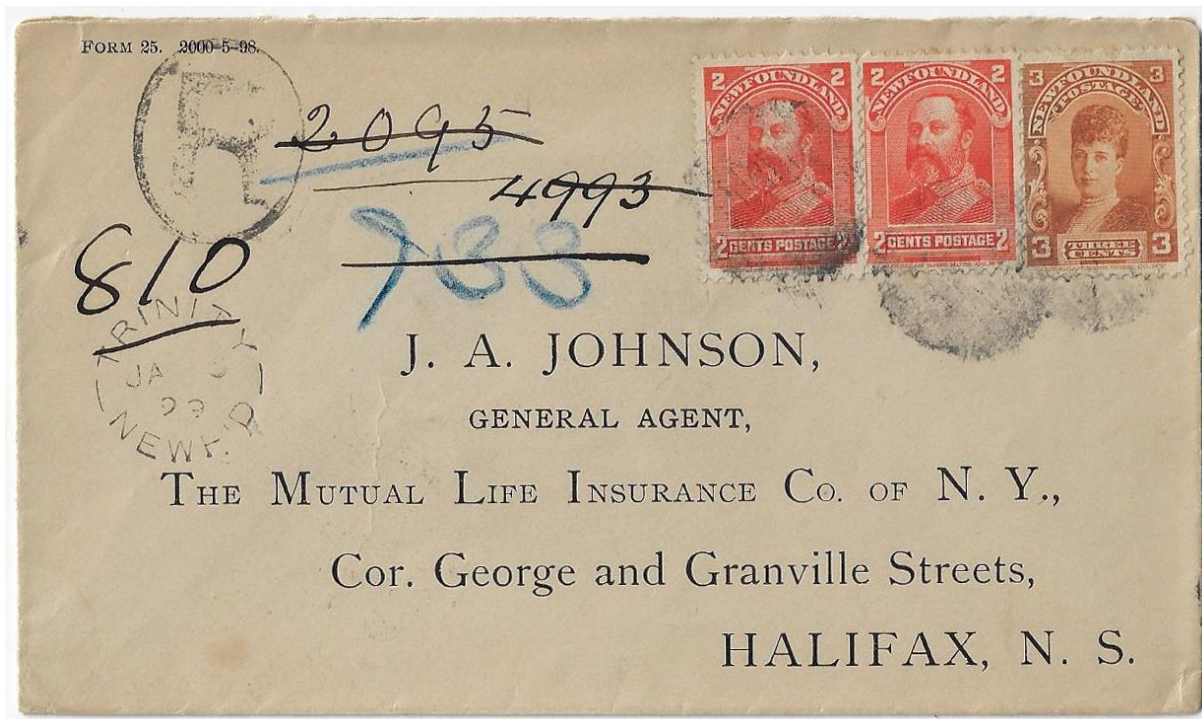 FORM 25. 2000-5-98.
R
2095
4993
810
2 2
NEWFOUNDLAND
2 CENTS POSTAGE 2
2 2
NEWFOUNDLAND
2 CENTS POSTAGE 2
3 3
NEWFOUNDLAND
POSTAGE
3 THREE CENTS 3
TRINITY
JA
99
NEWF'D
J. A. JOHNSON,
GENERAL AGENT,
THE MUTUAL LIFE INSURANCE CO. OF N. Y.,
Cor. George and Granville Streets,
HALIFAX, N. S.